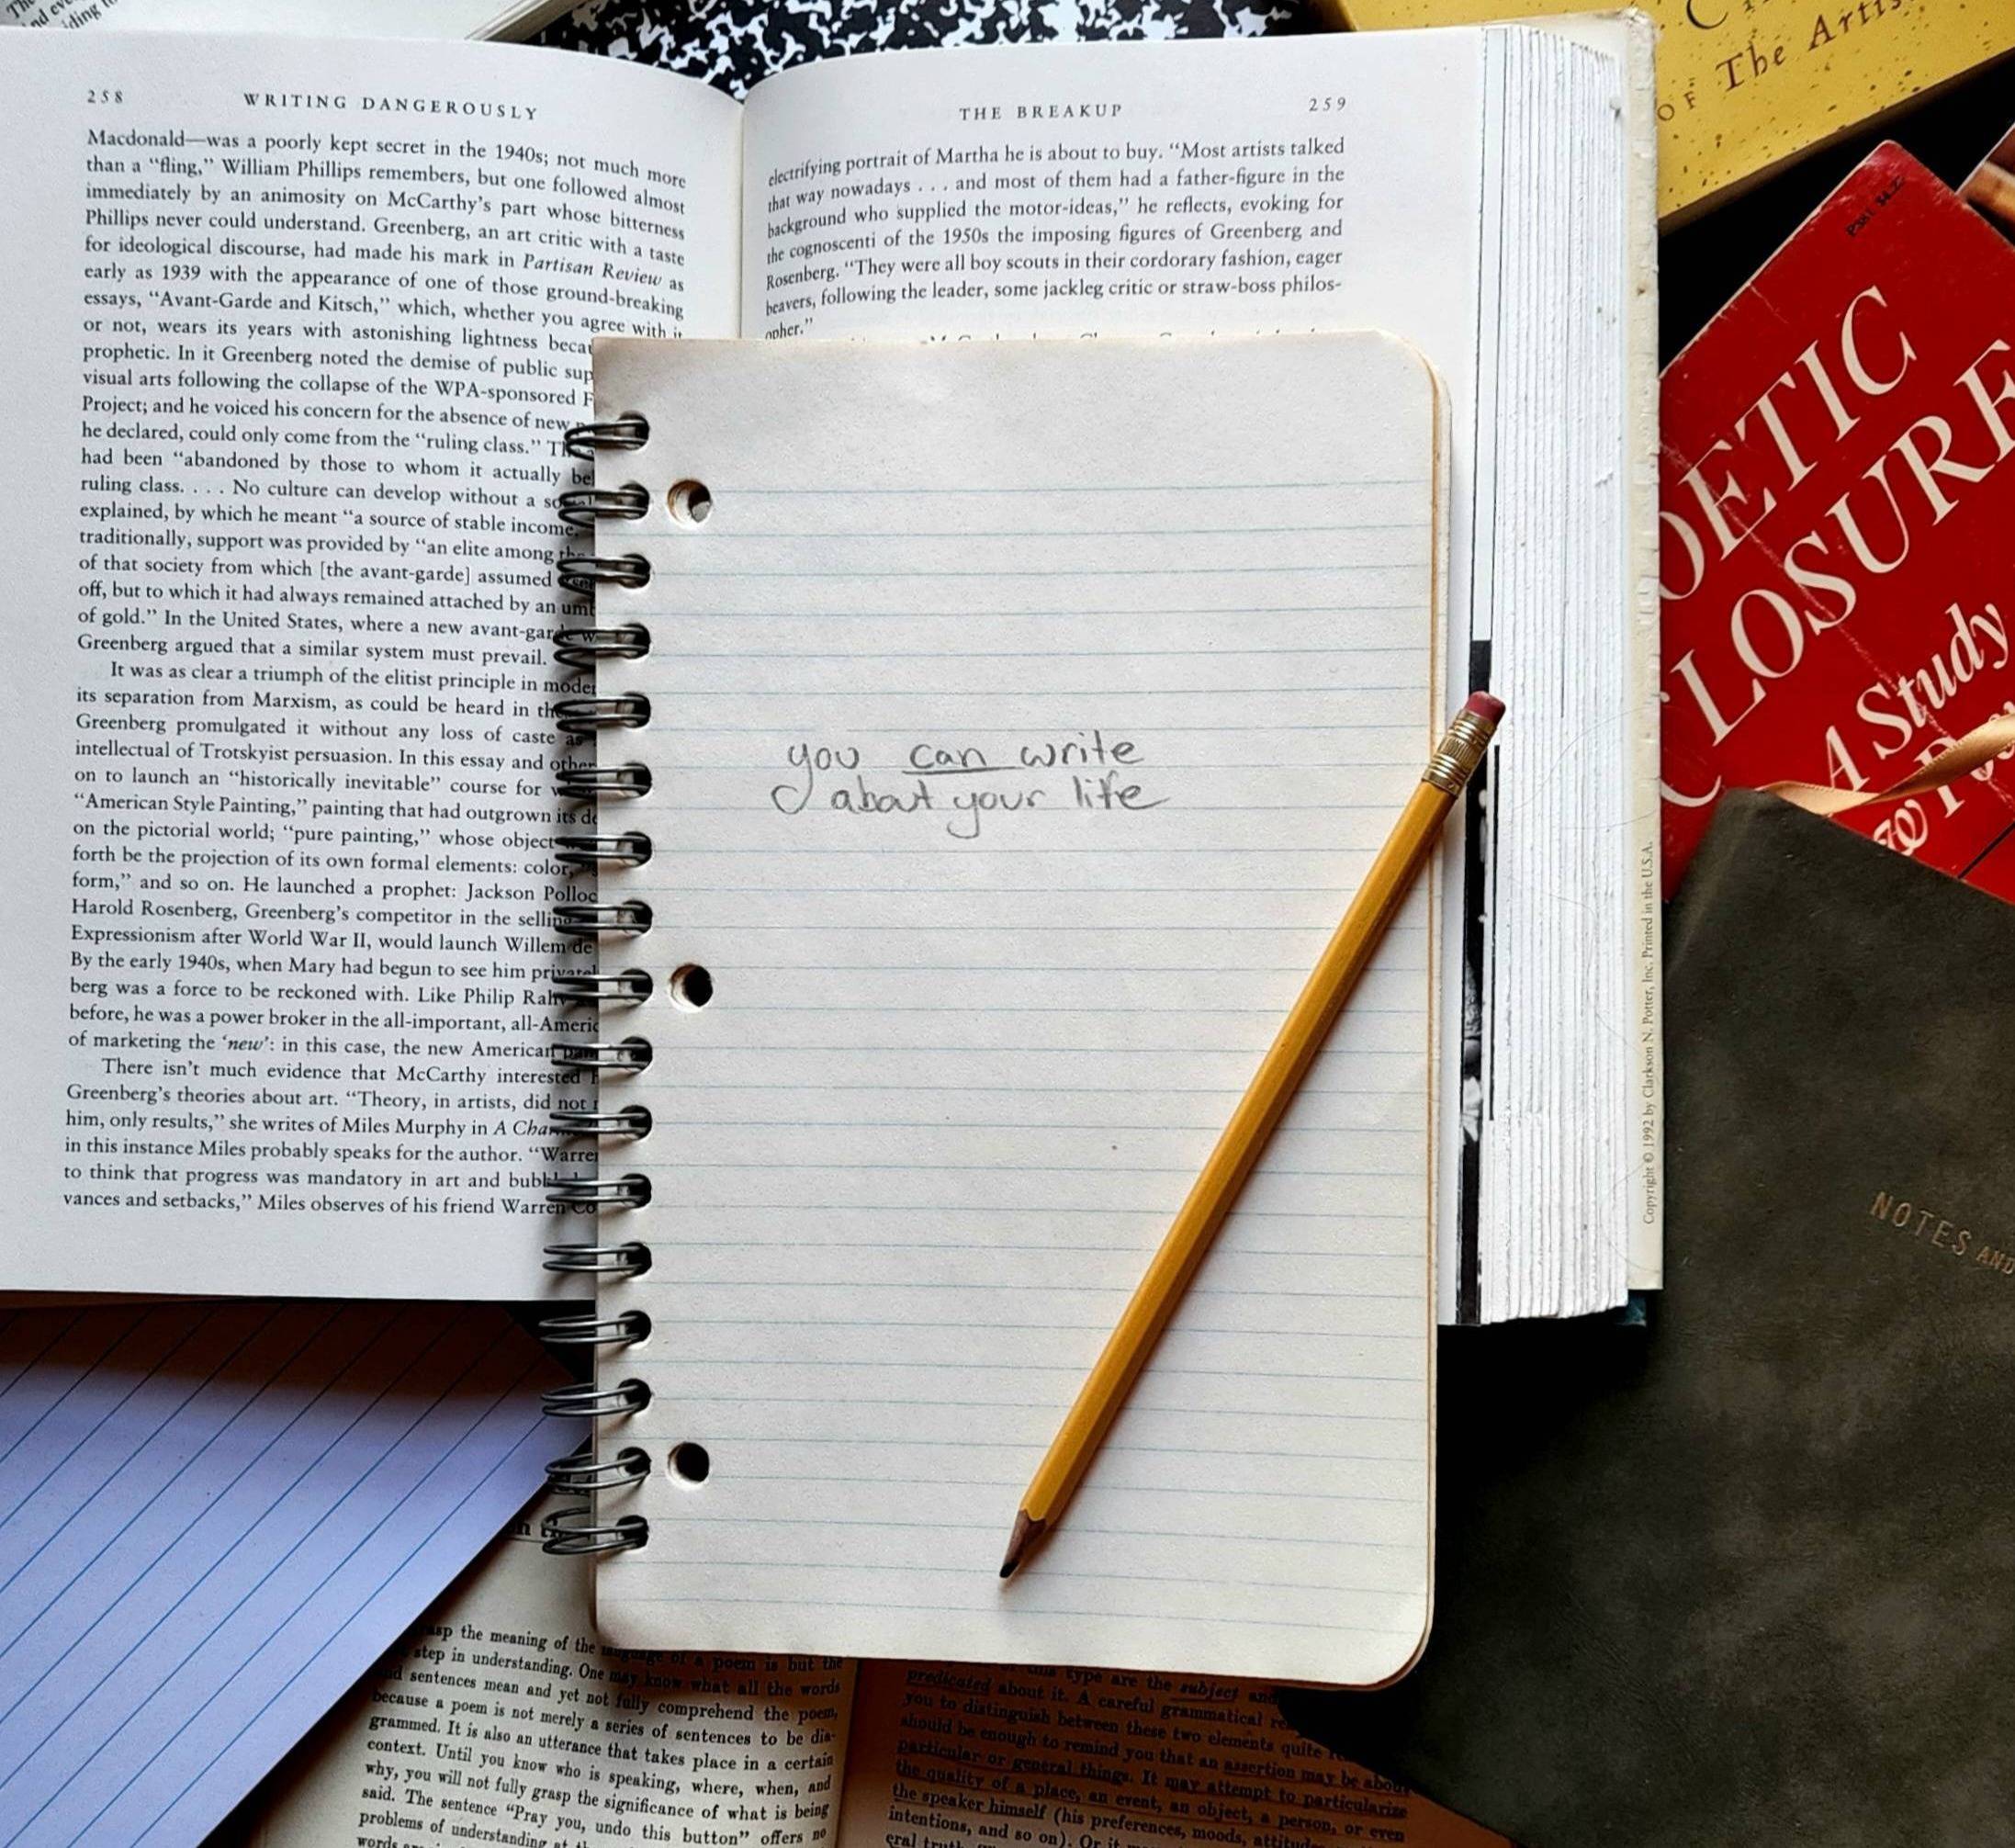 258 WRITING DANGEROUSLY
Macdonald—was a poorly kept secret in the 1940s; not much more
than a “fling,” William Phillips remembers, but one followed almost
immediately by an animosity on McCarthy’s part whose bitterness
Phillips never could understand. Greenberg, an art critic with a taste
for ideological discourse, had made his mark in Partisan Review as
early as 1939 with the appearance of one of those ground-breaking
essays, “Avant-Garde and Kitsch,” which, whether you agree with it
or not, wears its years with astonishing lightness
prophetic. In it Greenberg noted the demise of public
visual arts following the collapse of the WPA-sponsored
Project; and he voiced his concern for the absence of new
he declared, could only come from the “ruling class.”
had been “abandoned by those to whom it actually
ruling class. . . . No culture can develop without a
explained, by which he meant “a source of stable income.
traditionally, support was provided by “an elite among
of that society from which [the avant-garde] assumed
off, but to which it had always remained attached by an
of gold.” In the United States, where a new
Greenberg argued that a similar system must prevail.
It was as clear a triumph of the elitist principle in
its separation from Marxism, as could be heard in
Greenberg promulgated it without any loss of caste as
intellectual of Trotskyist persuasion. In this essay and other
on to launch an “historically inevitable” course for
“American Style Painting,” painting that had outgrown its
on the pictorial world; “pure painting,” whose object
forth be the projection of its own formal elements: color,
form,” and so on. He launched a prophet: Jackson
Harold Rosenberg, Greenberg’s competitor in the
Expressionism after World War II, would launch Willem de
By the early 1940s, when Mary had begun to see him
berg was a force to be reckoned with. Like Philip
before, he was a power broker in the all-important,
of marketing the ‘new’: in this case, the new American
There isn’t much evidence that McCarthy interested
Greenberg’s theories about art. “Theory, in artists, did not
him, only results,” she writes of Miles Murphy in A
in this instance Miles probably speaks for the author.
to think that progress was mandatory in art and
vances and setbacks,” Miles observes of his friend Warren
THE BREAKUP 259
electrifying portrait of Martha he is about to buy. “Most artists talked
that way nowadays . . . and most of them had a father-figure in the
background who supplied the motor-ideas,” he reflects, evoking for
the cognoscenti of the 1950s the imposing figures of Greenberg and
Rosenberg. “They were all boy scouts in their cordorary fashion, eager
beavers, following the leader, some jackleg critic or straw-boss philos-
opher.”
you can write
about your life
OF The
P381 34.2
POETIC
CLOSURE
A Study
Copyright © 1992 by Clarkson N. Potter, Inc. Printed in the U.S.A.
NOTES AND
the meaning of the language of a poem is but the
step in understanding. One may know what all the words
sentences mean and yet not fully comprehend the poem,
because a poem is not merely a series of sentences to be dia-
grammed. It is also an utterance that takes place in a certain
context. Until you know who is speaking, where, when, and
why, you will not fully grasp the significance of what is being
said. The sentence “Pray you, undo this button” offers no
problems of understanding
words
this type are the subject and
predicated about it. A careful grammatical
you to distinguish between these two elements quite
should be enough to remind you that an assertion may be about
particular or general things. It may attempt to particularize
the quality of a place, an event, an object, a person, or even
the speaker himself (his preferences, moods,
intentions, and so on). Or it